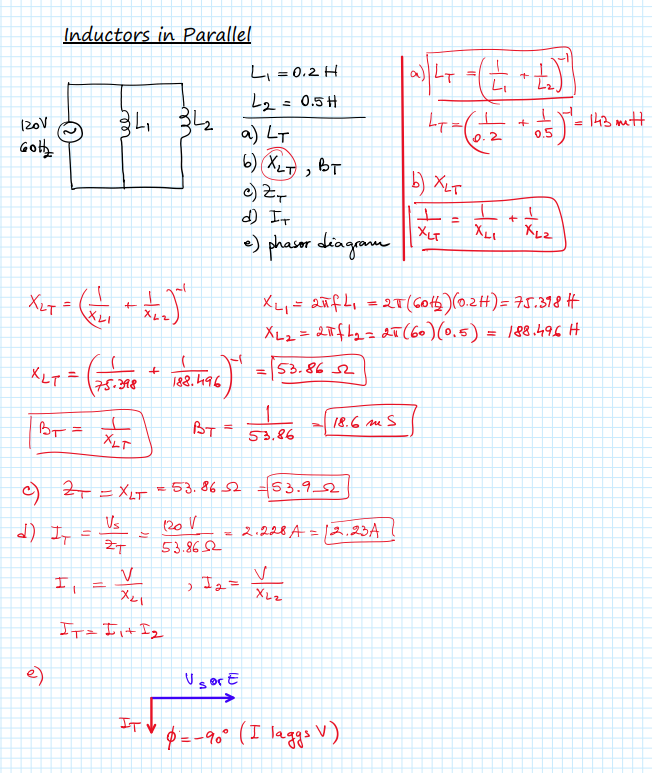 Inductors in Parallel
120V
60Hz
L1
L2
L1 = 0.2 H
L2 = 0.5 H
a) LT
b) XLT , BT
c) ZT
d) IT
e) phasor diagram
a) LT = (1/L1 + 1/L2)^-1
LT = (1/0.2 + 1/0.5)^-1 = 143 mH
b) XLT
1/XLT = 1/XL1 + 1/XL2
XLT = (1/XL1 + 1/XL2)^-1
XL1 = 2πfL1 = 2π(60Hz)(0.2H) = 75.398 H
XL2 = 2πfL2 = 2π(60)(0.5) = 188.496 H
XLT = (1/75.398 + 1/188.496)^-1 = 53.86 Ω
BT = 1/XLT BT = 1/53.86 = 18.6 mS
c) ZT = XLT = 53.86 Ω = 53.9 Ω
d) IT = Vs/ZT = 120 V/53.86 Ω = 2.228 A = 2.23A
I1 = V/XL1 , I2 = V/XL2
IT = I1 + I2
e)
Vs or E
IT
φ = -90° (I laggs V)